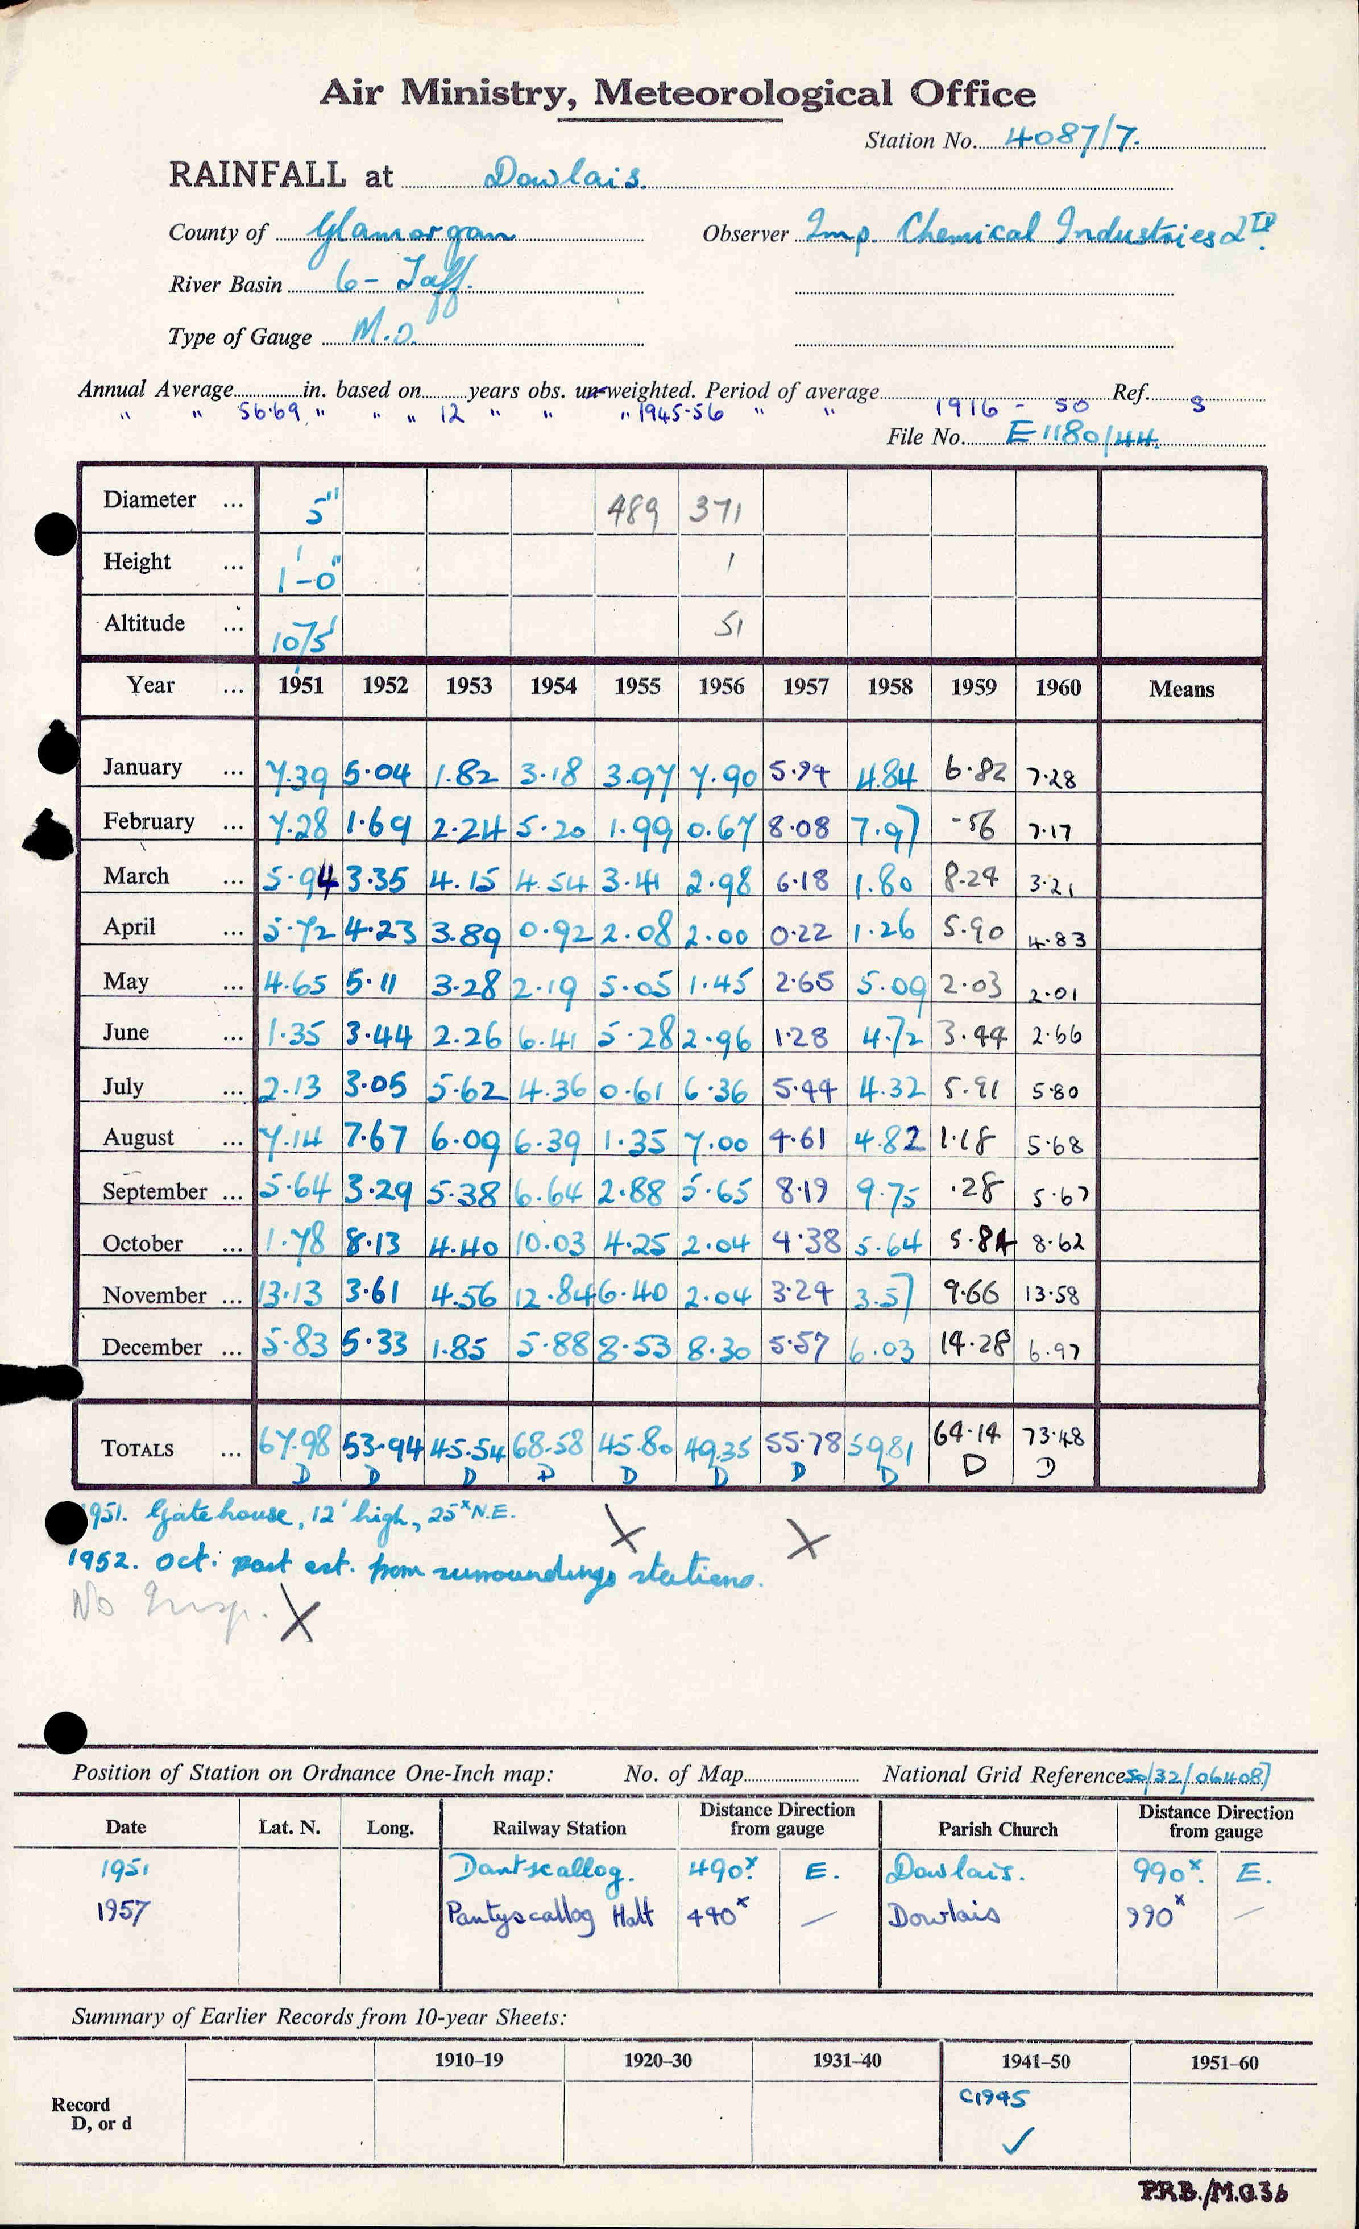 Air Ministry, Meteorological Office
Station No. 4087/7.
RAINFALL at Dowlais.
County of Glamorgan Observer Imp. Chemical Industries Ltd.
River Basin 6 - Taff.
Type of Gauge M.O.
Annual Average in. based on years obs. un-weighted. Period of average Ref.
" " 56.69 " " " 12 " " " 1945-56 " " 1916 - 50 S
File No. E1180/44.
Diameter ... 5" 489 371
Height ... 1'-0" 1
Altitude ... 1075' 51
Year ... 1951 1952 1953 1954 1955 1956 1957 1958 1959 1960 Means
January ... 7.39 5.04 1.82 3.18 3.97 7.90 5.94 4.84 6.82 7.28
February ... 7.28 1.69 2.24 5.20 1.99 0.67 8.08 7.97 -56 7.17
March ... 5.94 3.35 4.15 4.54 3.41 2.98 6.18 1.80 8.24 3.21
April ... 5.72 4.23 3.89 0.92 2.08 2.00 0.22 1.26 5.90 4.83
May ... 4.65 5.11 3.28 2.19 5.05 1.45 2.65 5.09 2.03 2.01
June ... 1.35 3.44 2.26 6.41 5.28 2.96 1.28 4.72 3.44 2.66
July ... 2.13 3.05 5.62 4.36 0.61 6.36 5.44 4.32 5.91 5.80
August ... 7.14 7.67 6.09 6.39 1.35 7.00 4.61 4.82 1.18 5.68
September ... 5.64 3.29 5.38 6.64 2.88 5.65 8.19 9.75 .28 5.67
October ... 1.78 8.13 4.40 10.03 4.25 2.04 4.38 5.64 5.84 8.62
November ... 13.13 3.61 4.56 12.84 6.40 2.04 3.24 3.57 9.66 13.58
December ... 5.83 5.33 1.85 5.88 8.53 8.30 5.57 6.03 14.28 6.97
TOTALS ... 67.98 53.94 45.54 68.58 45.80 49.35 55.78 59.81 64.14 73.48
D D D D D D D D D D
951. Gatehouse, 12' high, 25x N.E. X X
1952. Oct: part est. from surroundings stations.
No Insp. X
Position of Station on Ordnance One-Inch map: No. of Map National Grid Reference SO/32/064087
Date Lat. N. Long. Railway Station Distance Direction from gauge Parish Church Distance Direction from gauge
1951 Dantscallog. 490x. E. Dowlais. 990x. E.
1957 Pantyscallog Halt 490x — Dowlais 990x —
Summary of Earlier Records from 10-year Sheets:
1910–19 1920–30 1931–40 1941–50 1951–60
Record D, or d C1945 ✓
P.R.B./M.O.36